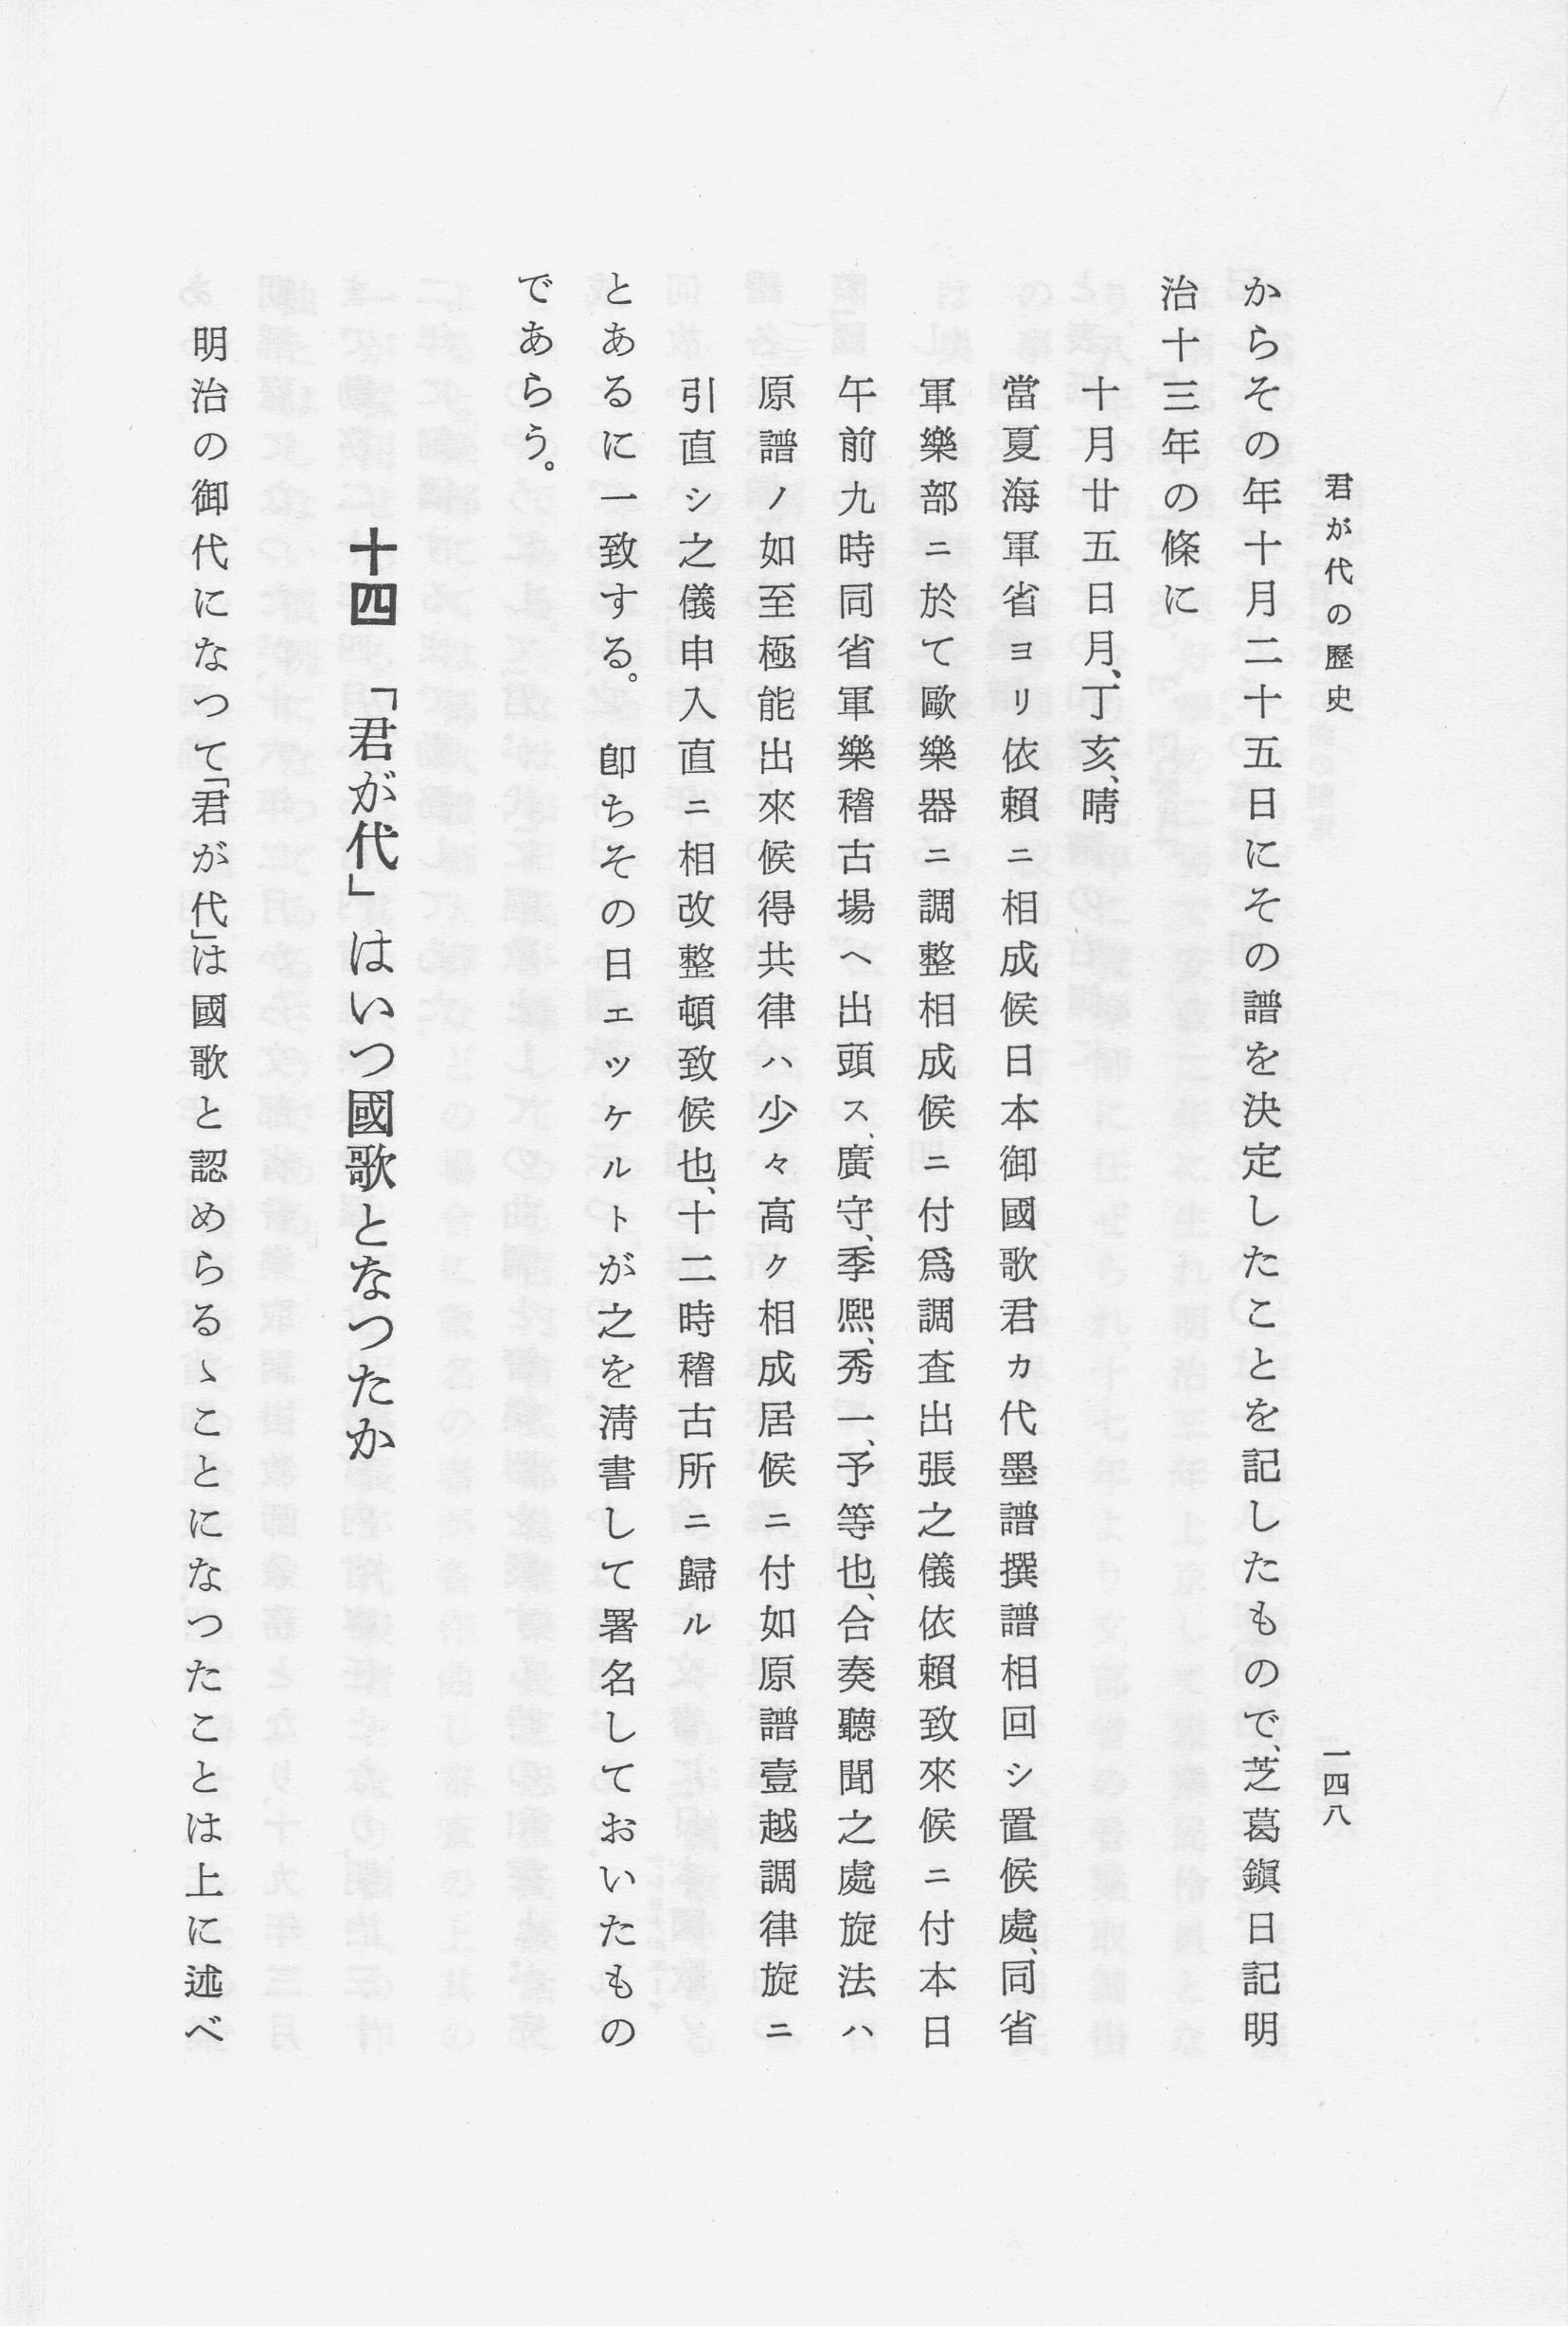 君が代の歴史
一四八
からその年十月二十五日にその譜を決定したことを記したもので、芝葛鎭日記明
治十三年の條に
十月廿五日月、丁亥、晴
當夏海軍省ヨリ依賴ニ相成候日本御國歌君カ代墨譜撰譜相回シ置候處、同省
軍樂部ニ於て歐樂器ニ調整相成候ニ付爲調査出張之儀依賴致來候ニ付本日
午前九時同省軍樂稽古場ヘ出頭ス、廣守、季熈、秀一、予等也、合奏聽聞之處旋法ハ
原譜ノ如至極能出來候得共律ハ少々高ク相成居候ニ付如原譜壹越調律旋ニ
引直シ之儀申入直ニ相改整頓致候也、十二時稽古所ニ歸ル
とあるに一致する。卽ちその日エッケルトが之を淸書して署名しておいたもの
であらう。
十四 「君が代」はいつ國歌となつたか
明治の御代になつて「君が代」は國歌と認めらるゝことになつたことは上に述べ